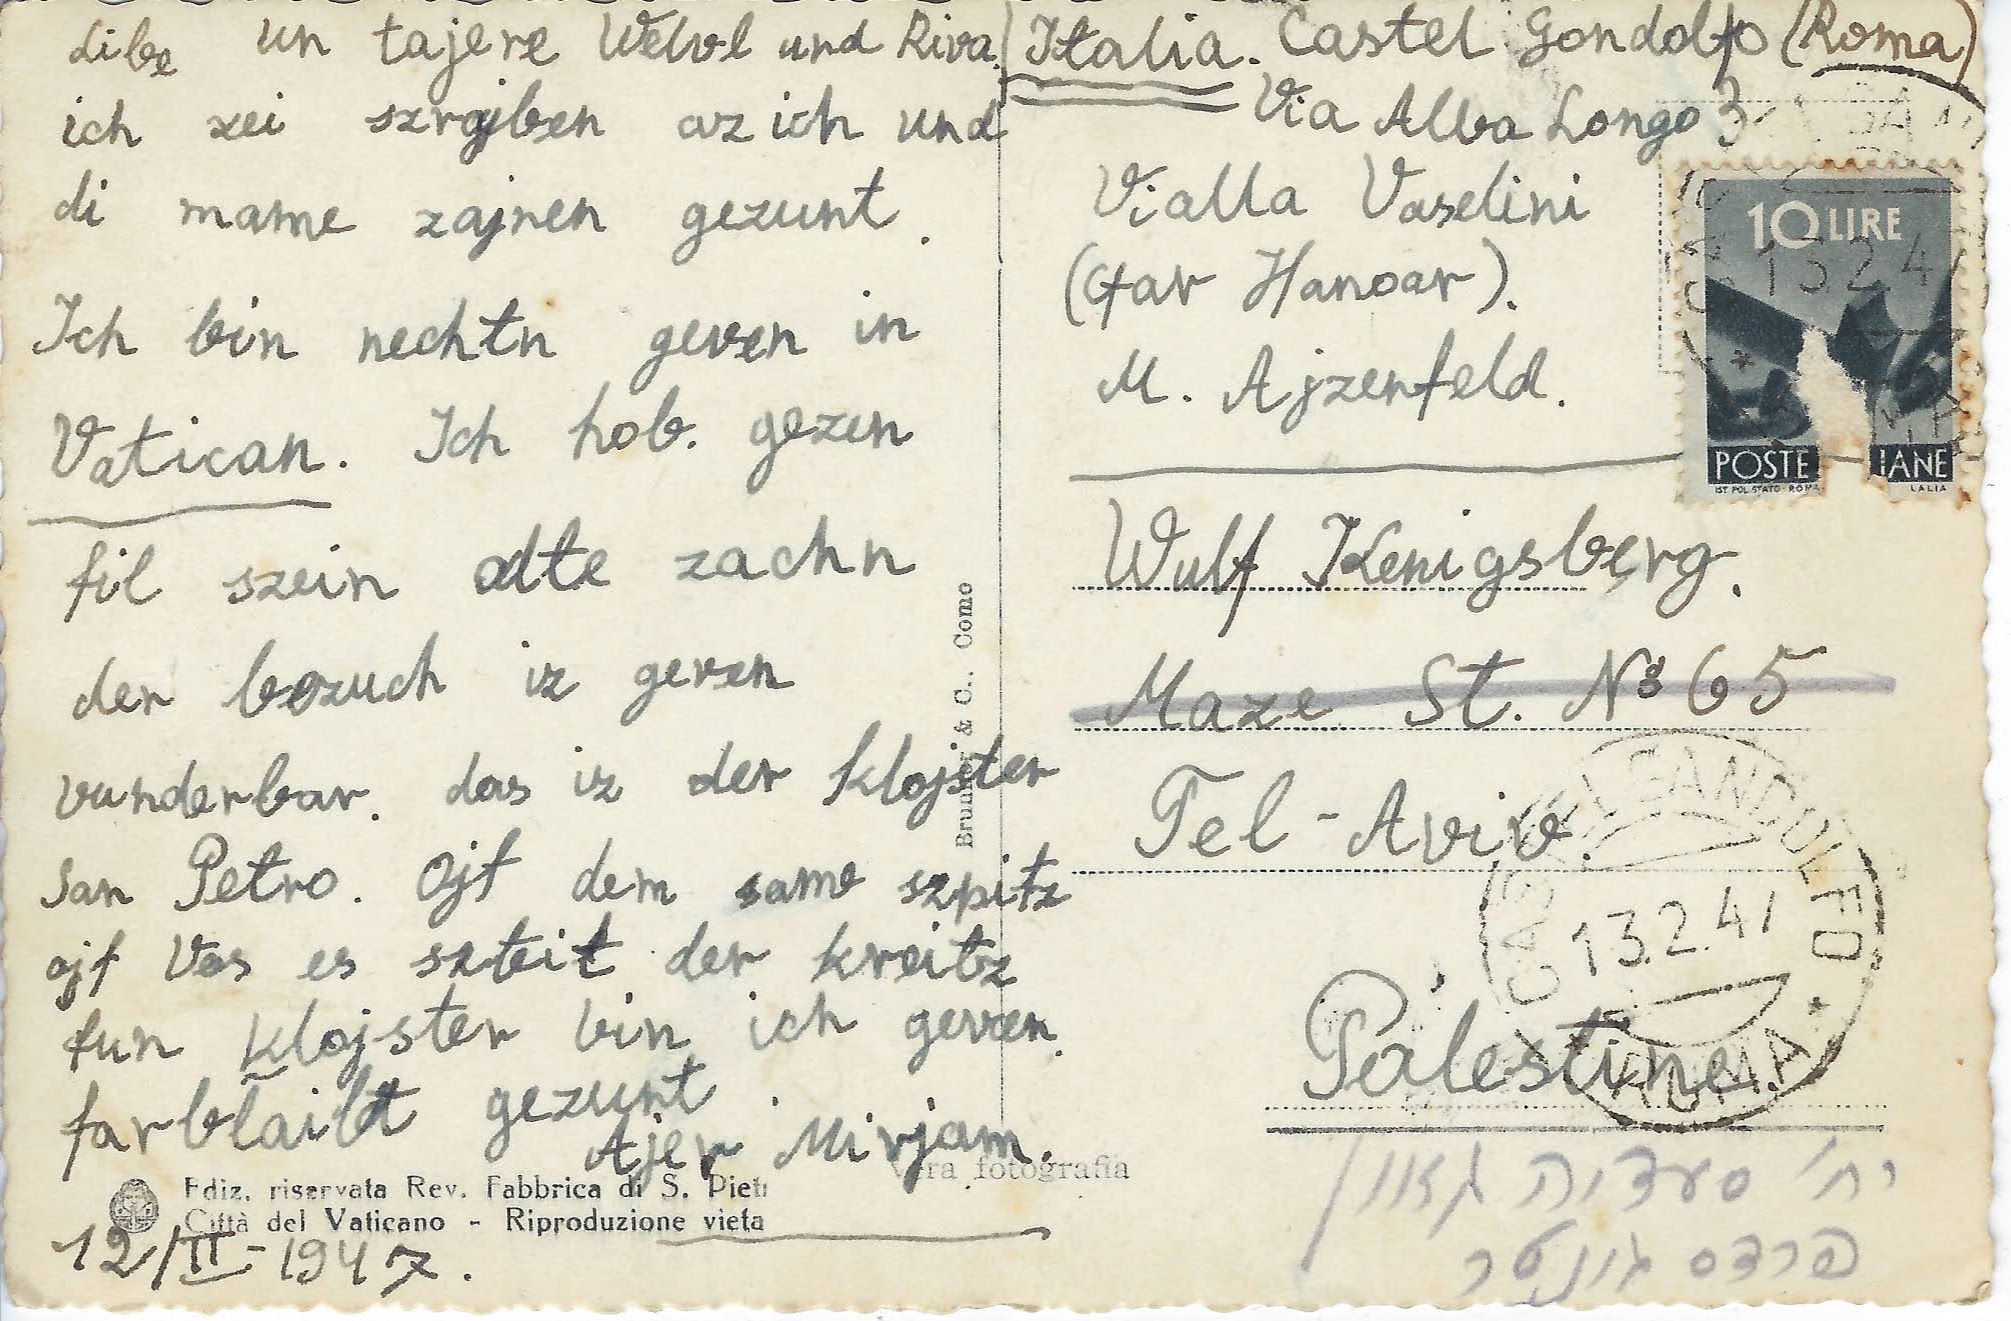 Libe un tajere Welvl und Riva!
ich zei szrajben az ich und
di mame zajnen gezunt.
Ich bin nechtn geven in
Vatican. Ich hob. gezen
fil szein alte zachn
der bezuch iz geven
vunderbar. das iz der klojster
San Petro. Ojf dem same szpitz
ojf Vos es szteit der kreitz
fun klojster bin ich geven.
farblaibt gezunt.
Ajer Mirjam.
Ediz. riservata Rev. Fabbrica di S. Piet
Città del Vaticano - Riproduzione vieta
12/II-1947.
Brunner & C., Como
Vera fotografia
Italia. Castel Gondolfo (Roma)
Via Alba Longo 3
Vialla Vaselini
(Gar Hanoar).
M. Ajzenfeld.
10 LIRE
POSTE IANE
IST. POL. STATO-ROMA LALIA
13.2.4
Wulf Kenigsberg.
Maze St. No 65
Tel-Aviv.
Palestine.
CASTEL GANDOLFO
13.2.47
* ROMA *
רח' סעדיה גאון
פרדס גונטר